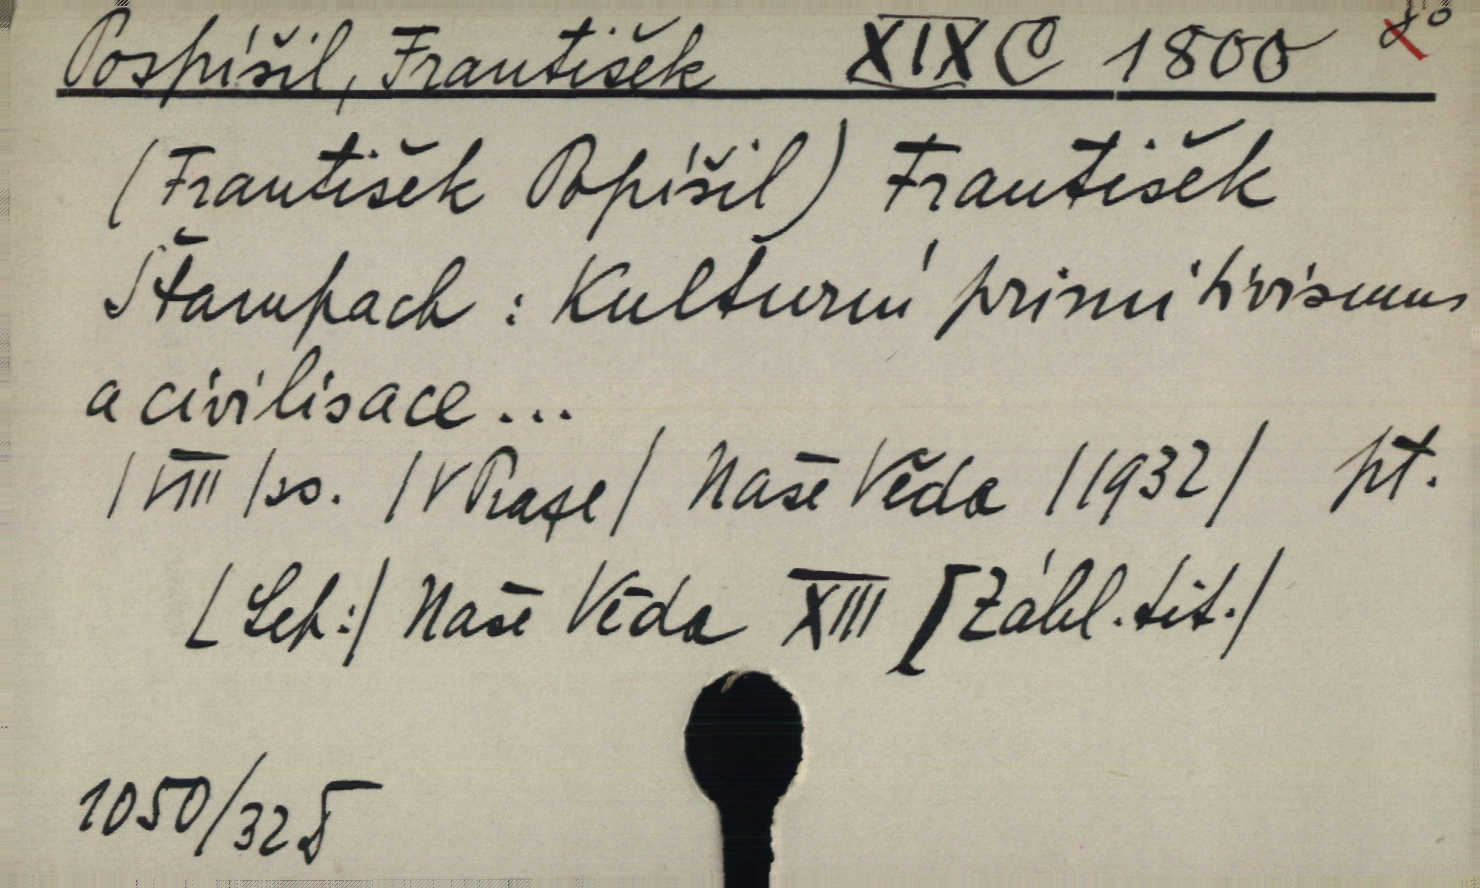 Pospíšil, František XIX C 1800 8°
(František Popíšil) František
Štampach: Kulturní primitivismus
a civilisace...
/VIII/ss. /V Praze/ Naše Věda /1932/ pt.
[Sep:/ Naše Věda XIII [Záhl. tit./
1050/32 δ